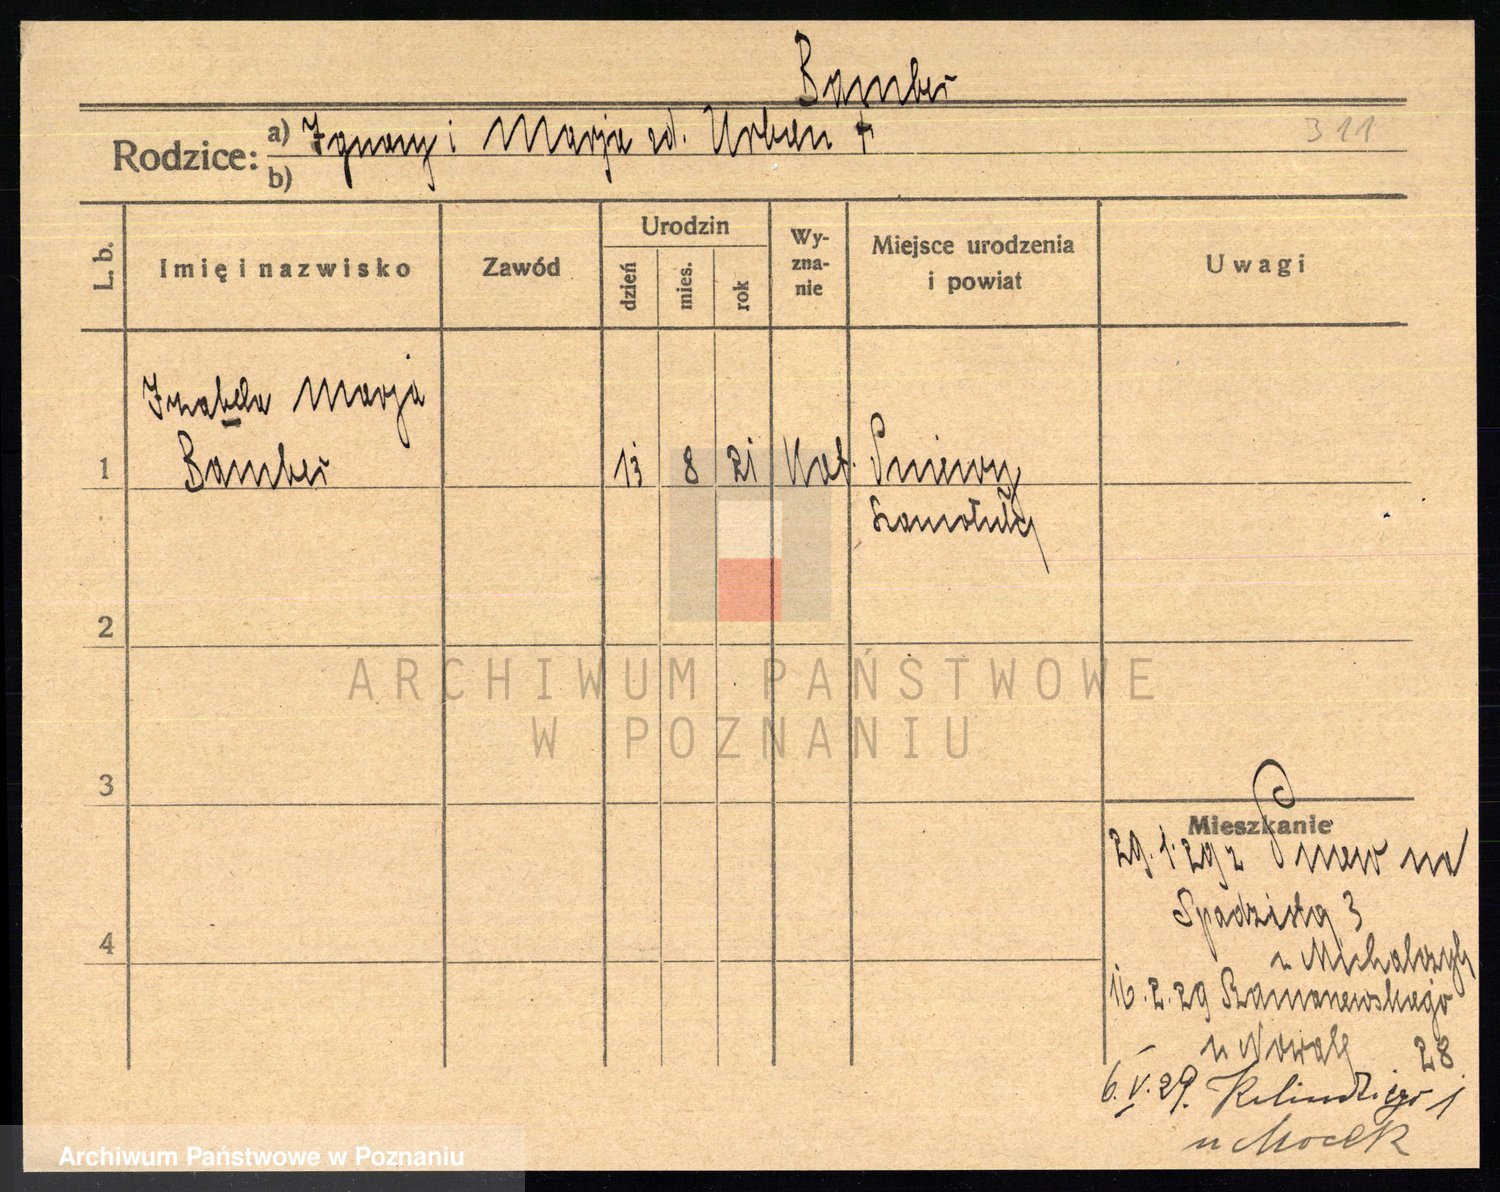 Bamber
Rodzice: a) Ignacy i Marja zd. Urban +
b)
311
L. b.
Imię i nazwisko
Zawód
Urodzin
dzień
mies.
rok
Wy-
zna-
nie
Miejsce urodzenia
i powiat
Uwagi
Izabela Marja
1 Bamber 13 8 21 Kat. Pniewy
Szamotuły
2
3
4
Mieszkanie
29.1.29 z Pniew na
Spadzistą 3
u Michalczyk
16.2.29 Szamarzewskiego
u Nowak 28
6.V.29. 1
u Mocek
ARCHIWUM PAŃSTWOWE
W POZNANIU
Archiwum Państwowe w Poznaniu